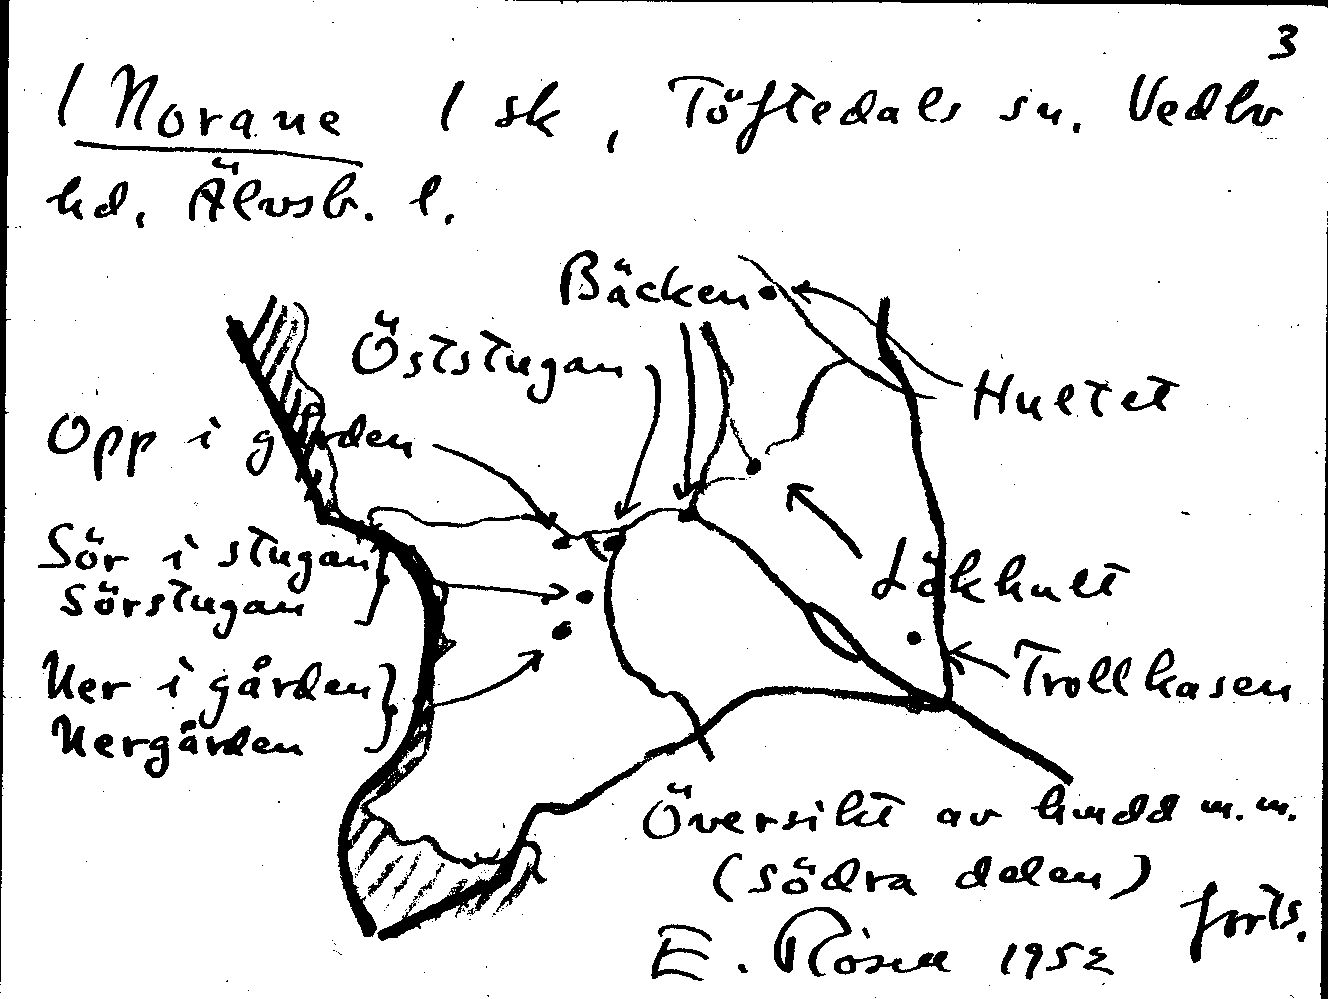 3
1 Norane 1 sk, Töftedals sn. Vedbo
hd. Älvsb. l.
Bäcken
Öststugan
Hultet
Opp i gården
Sör i stugan
Sörstugan
Lökhult
Ner i gården
Nergården
Trollkasen
Översikt av hmdd m.m.
(södra delen)
forts.
E. Rosell 1952